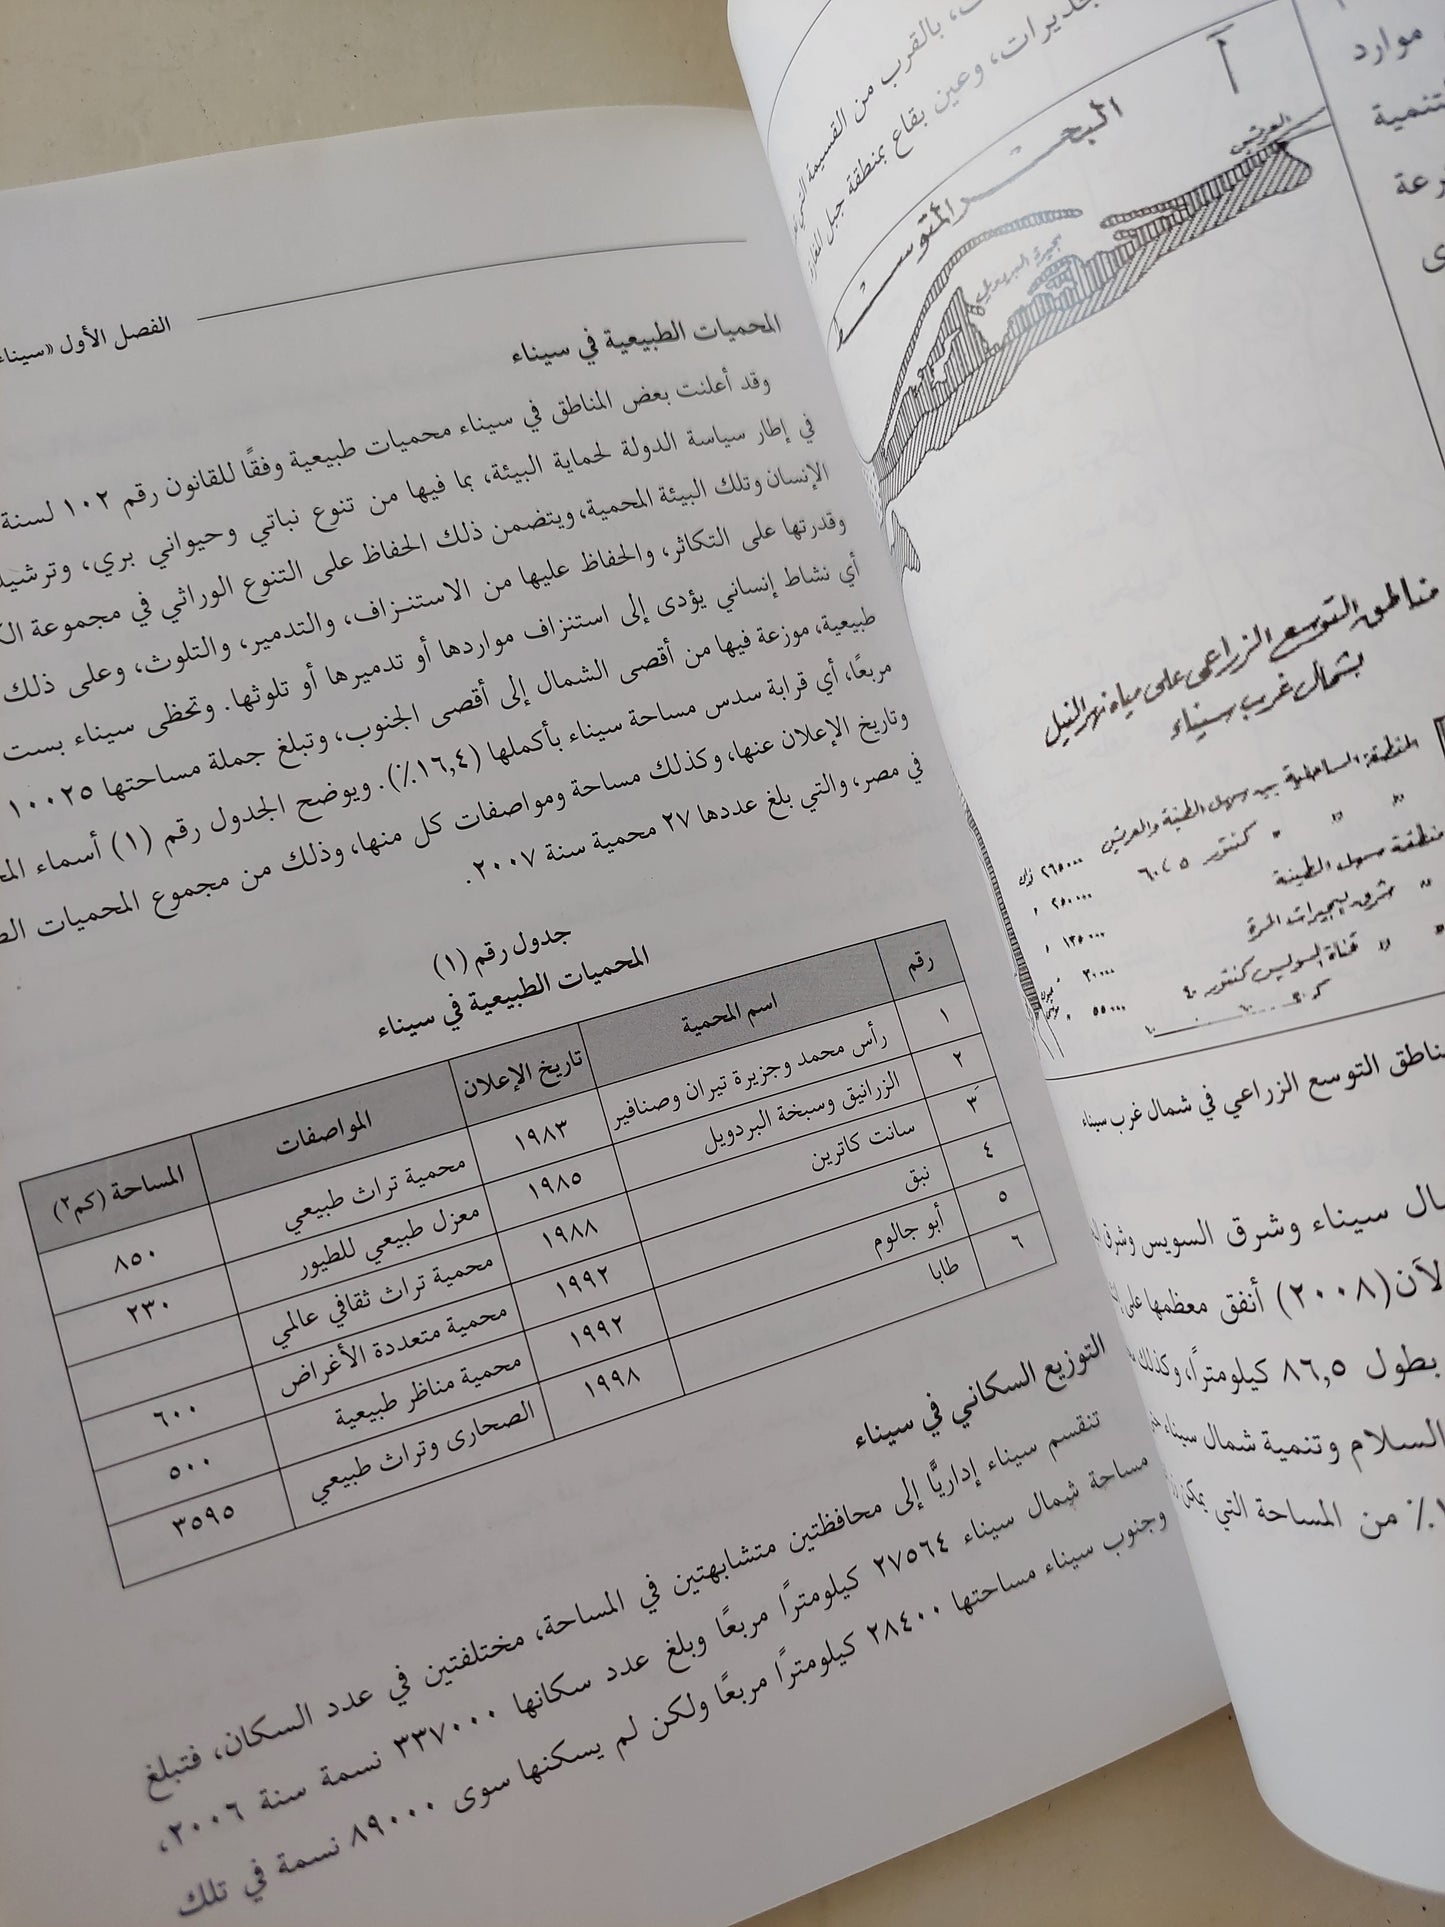 بالقرب من القسيمة
وعين بقاع بمنطقة جبل
أ
البحر المتوسط
العريش
بحيرة البردويل
مناطق التوسع الزراعى على مياه نهر النيل
بشمال غرب سيناء
المنطقة الساحلية بين سهل الطينة والعريش
منطقة سهل الطينة
شرق البحيرات المرة
قناة السويس كنتور ٤٠
مناطق التوسع الزراعي في شمال غرب سيناء
سيناء وشرق السويس وشرق
(٢٠٠٨) أنفق معظمها على
بطول ٨٦,٥ كيلومترًا، وكذلك
السلام وتنمية شمال سيناء
٪ من المساحة التي يمكن
موارد
الفصل الأول «سيناء
المحميات الطبيعية في سيناء
وقد أعلنت بعض المناطق في سيناء محميات طبيعية وفقًا للقانون رقم ١٠٢ لسنة
في إطار سياسة الدولة لحماية البيئة، بما فيها من تنوع نباتي وحيواني بري، وترشيد
الإنسان وتلك البيئة المحمية، ويتضمن ذلك الحفاظ على التنوع الوراثي في مجموعة
وقدرتها على التكاثر، والحفاظ عليها من الاستنزاف، والتدمير، والتلوث، وعلى ذلك
أي نشاط إنساني يؤدى إلى استنزاف مواردها أو تدميرها أو تلوثها. وتحظى سيناء بست
طبيعية، موزعة فيها من أقصى الشمال إلى أقصى الجنوب، وتبلغ جملة مساحتها ١٠٠٢٥
مربعًا، أي قرابة سدس مساحة سيناء بأكملها (١٦,٤٪). ويوضح الجدول رقم (١) أسماء
وتاريخ الإعلان عنها، وكذلك مساحة ومواصفات كل منها، وذلك من مجموع المحميات
في مصر، والتي بلغ عددها ٢٧ محمية سنة ٢٠٠٧.
جدول رقم (١)
المحميات الطبيعية في سيناء
رقم اسم المحمية تاريخ الإعلان المواصفات المساحة (كم٢)
١ رأس محمد وجزيرة تيران وصنافير ١٩٨٣ محمية تراث طبيعي ٨٥٠
٢ الزرانيق وسبخة البردويل ١٩٨٥ معزل طبيعي للطيور ٢٣٠
٣ سانت كاترين ١٩٨٨ محمية تراث ثقافي عالمي
٤ نبق ١٩٩٢ محمية متعددة الأغراض ٦٠٠
٥ أبو جالوم ١٩٩٢ محمية مناظر طبيعية ٥٠٠
٦ طابا ١٩٩٨ الصحارى وتراث طبيعي ٣٥٩٥
التوزيع السكاني في سيناء
تنقسم سيناء إداريًّا إلى محافظتين متشابهتين في المساحة، مختلفتين في عدد السكان، فتبلغ
مساحة شمال سيناء ٢٧٥٦٤ كيلومترًا مربعًا وبلغ عدد سكانها ٣٣٧٠٠٠ نسمة سنة ٢٠٠٦،
وجنوب سيناء مساحتها ٢٨٤٠٠ كيلومترًا مربعًا ولكن لم يسكنها سوى ٨٩٠٠٠ نسمة في تلك